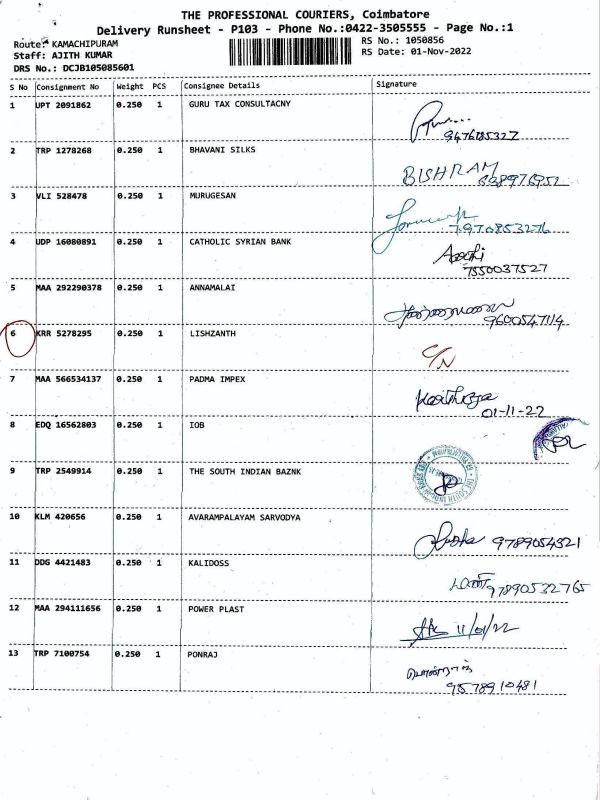 THE PROFESSIONAL COURIERS, Coimbatore
Delivery Runsheet - P103 - Phone No.:0422-3505555 - Page No.:1
Route: KAMACHIPURAM
RS No.: 1050856
Staff: AJITH KUMAR
RS Date: 01-Nov-2022
DRS No.: DCJB105085601
S No Consignment No Weight PCS Consignee Details Signature
1 UPT 2091862 0.250 1 GURU TAX CONSULTACNY
2 TRP 1278268 0.250 1 BHAVANI SILKS
BISHRAM
3 VLI 528478 0.250 1 MURUGESAN
7970853276
4 UDP 16080891 0.250 1 CATHOLIC SYRIAN BANK
7550037527
5 MAA 292290378 0.250 1 ANNAMALAI
6 KRR 5278295 0.250 1 LISHZANTH
C/N
7 MAA 566534137 0.250 1 PADMA IMPEX
01-11-22
8 EDQ 16562803 0.250 1 IOB
9 TRP 2549914 0.250 1 THE SOUTH INDIAN BAZNK
10 KLM 420656 0.250 1 AVARAMPALAYAM SARVODYA
9789054321
11 DDG 4421483 0.250 1 KALIDOSS
97890532765
12 MAA 294111656 0.250 1 POWER PLAST
11/01/22
13 TRP 7100754 0.250 1 PONRAJ
பொன்ராஜ்
9578910481